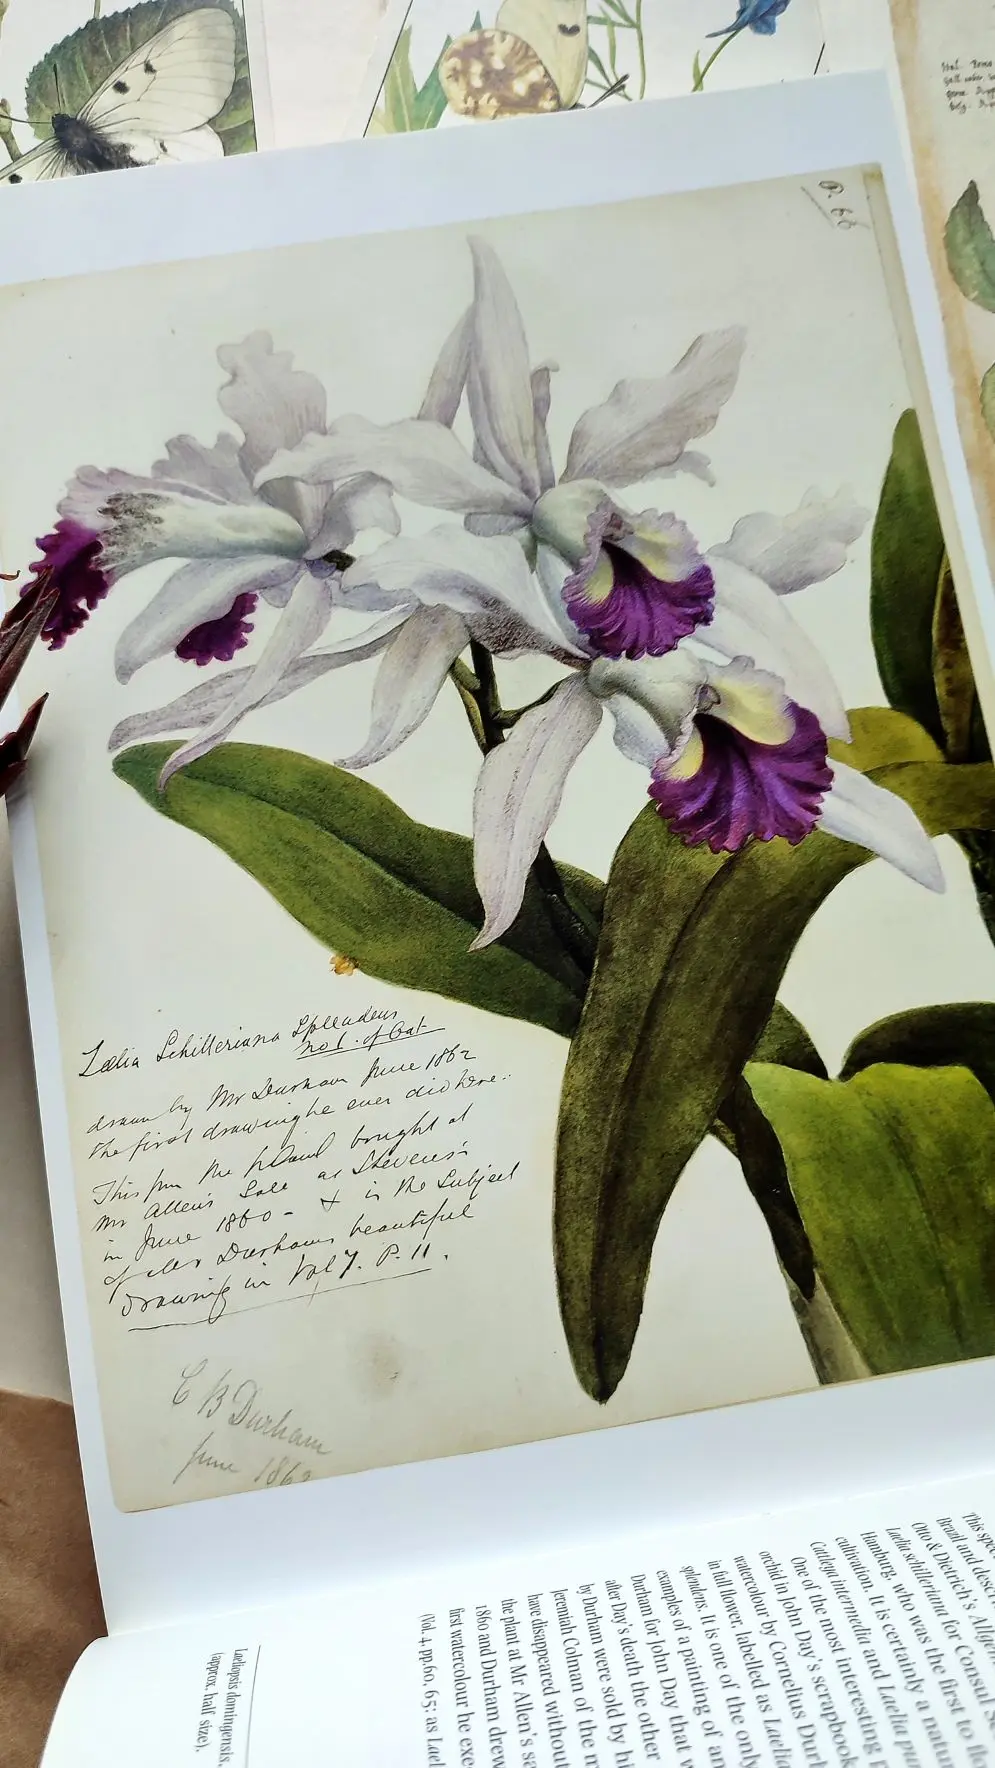 P. 66
Lœlia Schilleriana Splendens
no 1. of Cat
drawn by Mr Durham June 1862
the first drawing he ever did here.
This from the plant bought at
Mr Allen's Sale at Stevens's
in June 1860 - & is the Subject
of Mr Durhams beautiful
Drawing in Vol 7. P. 11.
C B Durham
June 1862
This spec
Brazil and desc
Otto & Dietrich's Allge
Laelia schilleriana for Consul Sc
Hamburg, who was the first to fl
cultivation. It is certainly a natu
Cattleya intermedia and Laelia pur
One of the most interesting
orchid in John Day's scrapbook
watercolour by Cornelius Durh
in full flower, labelled as Laelia
splendens. It is one of the only
examples of a painting of an
Durham for John Day that w
after Day's death the other
by Durham were sold by hi
Jeremiah Colman of the m
have disappeared without
the plant at Mr Allen's sa
1860 and Durham drew
first watercolour he exe
(Vol. 4, pp.60, 65; as Lael
Laeliopsis domingensis,
(approx. half size),